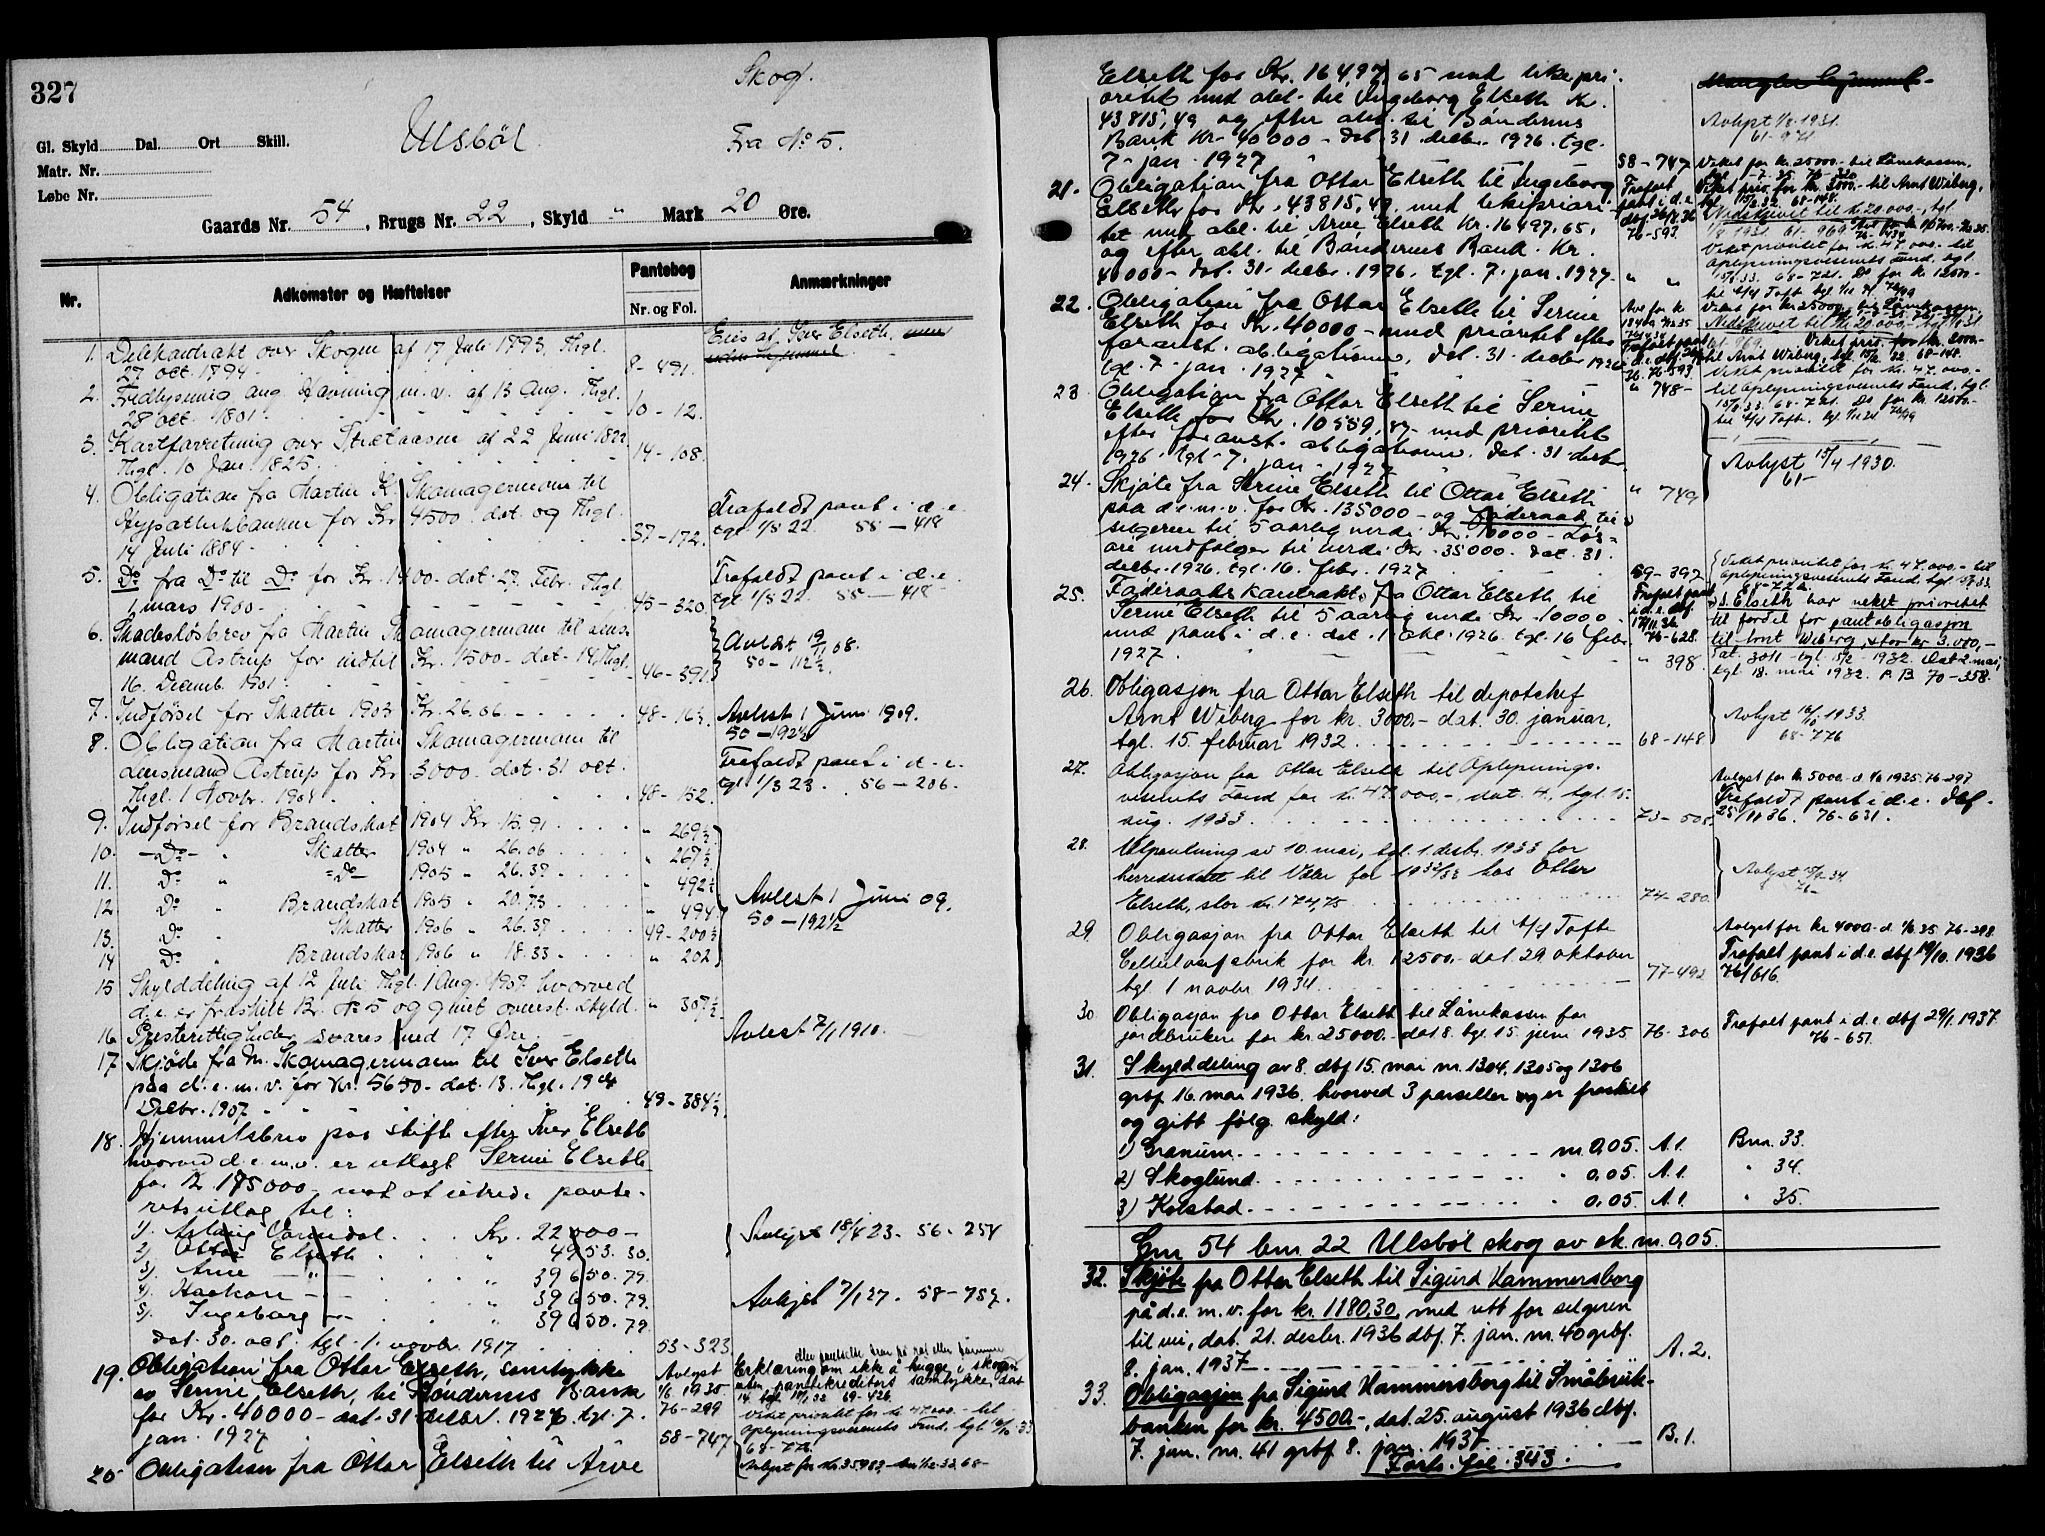 327
Skog.
Ulsbøl
Fra No 5.
Gl. Skyld Dal. Ort Skill.
Matr. Nr.
Løbe Nr.
Gaards Nr. 54, Brugs Nr. 22, Skyld " Mark 20 Øre.
Nr. Adkomster og Hæftelser Pantebog Nr. og Fol. Anmærkninger
1. Delekontrakt over Skogen af 17 Juli 1793. Thgl.
27 oct. 1794 8-491. Eies af Iver Elseth.
2. Fredlysning ang. Havning m.v. af 13 Aug. Thgl.
28 oct. 1801 10-12.
3. Kartforretning over af 22 Juni 1822
Thgl. 10 Jan. 1825. 14-108.
4. Obligation fra Martin K. Skomagermoen til
Hypothekbanken for Kr 4500 dat. og Thgl.
14 Juli 1884. 37-172. Frafaldt pant i d.e.
tgl 1/8 22 55-418
5. Do fra Do til Do for Kr. 1400. dat. 27. Febr. Thgl.
1 mars 1900. 45-320. Frafaldt pant i d.e.
tgl 1/8 22. 55-418
6. Skadesløsbrev fra Martin Skomagermoen til lens-
mand Astrup for indtil Kr. 1500 dat. 14, Thgl.
16. Decemb. 1901 46-391 Avlæst 19/11 08.
50-112½.
7. Indførsel for Skatter 1903 Kr. 26.06 48-163. Avlest 1 Juni 1909.
50-192½
8. Obligation fra Martin Skomagermoen til
Lensmand Astrup for Kr 3000. dat. 31 oct.
Thgl. 1 Novbr. 1904. 48-152. Frafaldt pant i d.e.
tgl 1/3 23. 56-206.
9. Indførsel for Brandskat 1904 Kr 15.91 " 269½
10. Do " Skatter 1904 " 26.06 " 267½
11. Do " Do 1905 " 26.37 " 492½
12. Do " Brandskat 1905 " 20.73 " 494 Avlest 1 Juni 09.
50-192½
13. Do " Skatter 1906 " 26.37 49-200½
14 Do " Brandskat 1906 " 18.33 " 202
15 Skylddeling af 12 Juli Thgl. 1 Aug. 1907 hvorved
d.e. er fraskilt Br. No 5 og givet ovenst. skyld. " 307½
16 Presterettigheder svares med 17 Øre. Avlest 7/1 1910.
17. Skjøde fra M. Skomagermoen til Iver Elseth
paa d.e.m.v. for Kr. 5650. dat. 13. Thgl. 19de
Decbr. 1907 49-384½
18. Hjemmelsbrev paa skifte efter Iver Elseth
hvorved d.e.m.v. er utlagt Serine Elseth
for Kr 175000, mot at utrede pante-
retsutlæg til:
1). Aslaug Kr. 22000-
2). Ottar Elseth " 4953.30. Avlyst 18/4 23. 56-254
3). Arve " 39650.79.
4). Haakon " 39650.79. Avlyst 7/1 27. 58-752.
5). Ingeborg " 39650.79.
dat. 30. oct. tgl. 1. novbr. 1917 53-323
19. Obligation fra Ottar Elseth, samtykke
av Serine Elseth, til Bøndernes Bank
for Kr. 40000- dat. 31 decbr. 1926. tgl. 7.
jan. 1927 58-747
Avlyst
1/6 1935.
76-299
Erklæring om ikke å hugge i skogen
uten pantekreditors samtykke, dat
Veket prioritet for kr 47000.- til
Oplysningsvesenets Fond.
20 Obligation fra Ottar Elseth til Arve
Elseth for Kr. 16497,65 med like pri-
oritet med obl. til Ingeborg Elseth Kr.
43815,49 og efter obl. til Bøndernes
Bank Kr. 40000- dat. 31 decbr. 1926. tgl.
7. jan. 1927 58-747
Avlyst 1/8 1931.
61-971
21. Obligation fra Ottar Elseth til Ingeborg
Elseth for Kr. 43815,49, med likepriori-
tet med obl. til Arve Elseth Kr. 16497,65,
og efter obl. til Bøndernes Bank Kr.
40000- dat. 31. decbr. 1926. tgl. 7. jan. 1927. " "
Frafalt
pant i d.e.
76-593.
Veket for kr. 25000.- til Lånekassen.
Veket prior. for kr. 3000.- til Arnt Wiberg,
Nedskrevet til kr. 20.000.-, tgl.
Veket prioritet for kr. 47.000.- til
Oplysningsvesenets Fond, tgl.
22. Obligation fra Ottar Elseth til Serine
Elseth for Kr. 40000- med prioritet efter
foranst. obligationer, dat. 31. decbr 1926
tgl. 7. jan. 1927 " 748-
Veket for kr 25000.- til Lånekassen
Nedskrevet til kr. 20.000.-
til Arnt Wiberg, tgl. 15/2. 32. 68-148.
Veket prioritet for kr. 47.000.-
til Oplysningsvesenets Fond, tgl.
23. Obligation fra Ottar Elseth til Serine
Elseth for Kr. 10559,89- med prioritet
efter foranst. obligationer. dat. 31 decbr
1926. tgl. 7. jan. 1927 " 749
Avlyst 15/4 1930.
61-
24. Skjøte fra Serine Elseth til Ottar Elseth
paa d.e.m.v. for Kr. 135000- og føderaad til
selgeren til 5 aarlig verdi Kr. 10000- Løs-
øre medfølger til verdi Kr. 35000. Dat. 31.
decbr. 1926. tgl. 16. febr. 1927 59-397
25. Føderaadskontrakt fra Ottar Elseth til
Serine Elseth til 5 aarlig verdi Kr. 10000
med pant i d.e. dat. 1. okt. 1926. tgl. 16 febr.
1927. " 398.
Frafalt pant
i d.e. dbf.
17/11.36.
76-628.
Veket prioritet for kr. 47.000.- til
Oplysningsvesenets Fond, tgl. 15/8 33
S. Elseth har veket prioritet
til fordel for pantobligasjon
til Arnt Wiberg, stor kr. 3.000,-
dat. 30/1 tgl. 15/2 1932. Dat 2 mai,
tgl. 18. mai 1932. P.B. 70-358.
26. Obligasjon fra Ottar Elseth til depotchef
Arnt Wiberg for kr. 3000.- dat. 30. januar,
tgl. 15. februar 1932 68-148
Avlyst 16/10 1933.
68-776
27. Obligasjon fra Ottar Elseth til Oplysnings-
vesenets Fond for kr. 47.000.-, dat. 4., tgl. 15.
aug. 1933 73-508.
Avlyst for kr 5000.- d. 1/6 1935. 76-297
Frafaldt pant i d.e. dbf.
25/11 36. 76-631.
28. Utpantning av 10. mai, tgl. 1. desbr. 1933 for
herredsskatt til Våler for 1932/33 hos Ottar
Elseth, stor kr. 174,75 74-280.
29. Obligasjon fra Ottar Elseth til A/S Tofte
Cellulosefabrik for kr. 12500.- dat 29. oktober
tgl 1 novbr 1934. 77-492
Avlyst for kr 4000.- d. 1/6 35. 76-298
Frafalt pant i d.e. dbf 19/10. 1936
76/616.
30. Obligasjon fra Ottar Elseth til Lånekassen for
jordbrukere for kr. 25000.- dat 8. tgl. 15. juni 1935 76-306
Frafalt pant i d.e. dbf 29/1. 1937.
76-651.
31. Skylddeling av 8. dbf 15. mai nr. 1304, 1305 og 1306
grbf 16. mai 1936, hvorved 3 parseller er fraskilt
og gitt følg. skyld:
1) Granum m. 0,05. A.1. Bnr. 33.
2) Skoglund " 0,05. A.1. " 34.
3) Kolstad " 0,05. A.1. " 35.
Gnr 54 bnr 22 Ulsbøl skog av sk. m. 0,05.
32. Skjøte fra Ottar Elseth til Sigurd Hammersborg
på d.e.m.v. for kr. 1180,30, med rett for selgeren
til vei, dat. 21. desbr. 1936 dbf. 7. jan. nr. 40 grbf.
8. jan. 1937 A.2.
33. Obligasjon fra Sigurd Hammersborg til Småbruk-
banken for kr. 4500.-, dat. 25. august 1936 dbf.
7. jan. nr. 41 grbf 8. jan. 1937 B.1.
Forts. fol. 343.